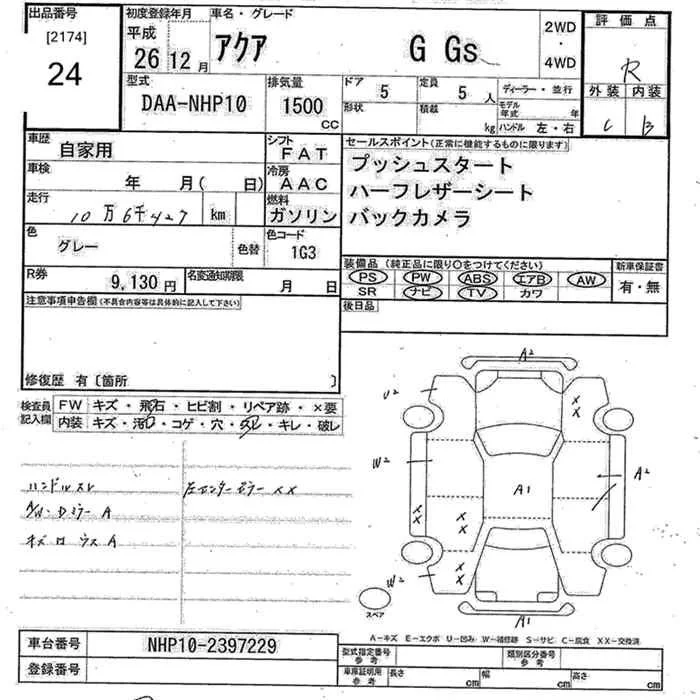 出品番号
[2174]
24
初度登録年月
平成
26 12月
車名・グレード
アクア G Gs
2WD
・
4WD
評価点
R
外装 内装
C B
型式
DAA-NHP10
排気量
1500
cc
ドア
5
定員
5 人
形状
積載
kg
ディーラー・並行
モデル年式 年
ハンドル 左・右
車歴
自家用
シフト
FAT
車検
年 月( 日)
冷房
AAC
走行
10万6千427 km
燃料
ガソリン
色
グレー
色替
色コード
1G3
R券
9,130円
名変通知期限
月 日
セールスポイント(正常に機能するものに限ります)
プッシュスタート
ハーフレザーシート
バックカメラ
装備品(純正品に限り○をつけてください)
PS PW ABS エアB AW
SR ナビ TV カワ
新車保証書
有・無
後日品
注意事項申告欄(不具合内容等は具体的に記入して下さい)
修復歴 有〔箇所 〕
検査員記入欄
FW キズ・飛石・ヒビ割・リペア跡・×要
内装 キズ・汚れ・コゲ・穴・スレ・キレ・破レ
ハンドルスレ
左センターピラー XX
A
A
A2
U2
XX
W2
A2
XX
XX
A1
W2
XX
A1
スペア
A-キズ E-エクボ U-凹み W-補修跡 S-サビ C-腐食 XX-交換済
車台番号
NHP10-2397229
登録番号
型式指定番号
参考
類別区分番号
参考
車庫証明用
参考
長さ cm
幅 cm
高さ cm